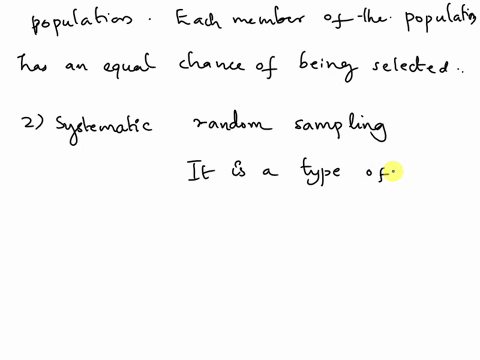 population. Each member of the populatin
has an equal chance of being selected.
2) Systematic random sampling
It is a type of